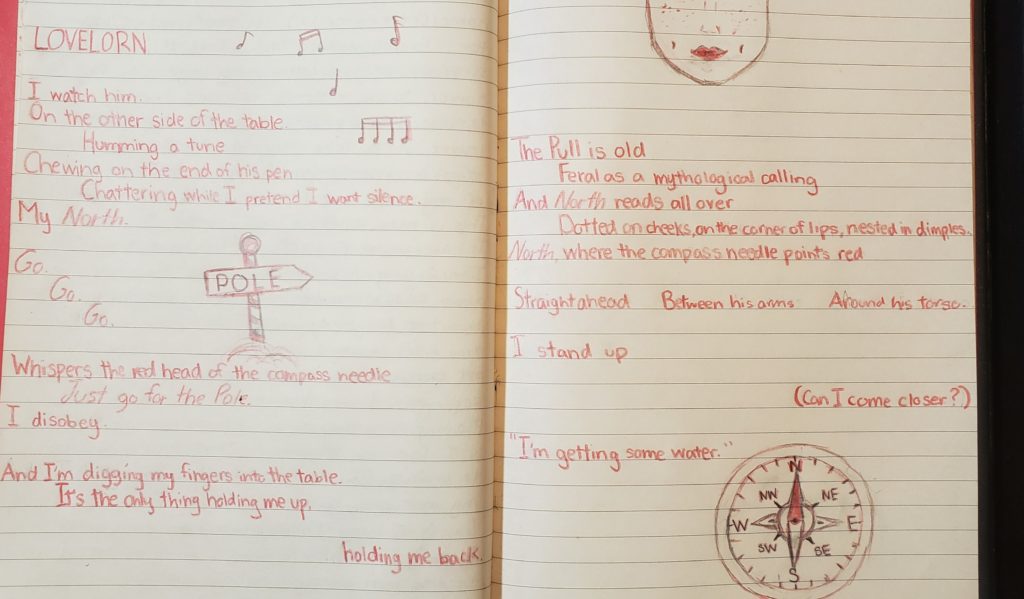 LOVELORN
I watch him.
On the other side of the table.
Humming a tune
Chewing on the end of his pen
Chattering while I pretend I want silence.
My North.
Go.
Go.
Go.
POLE
Whispers the red head of the compass needle
Just go for the Pole.
I disobey.
And I'm digging my fingers into the table.
It's the only thing holding me up,
holding me back.
The Pull is old
Feral as a mythological calling
And North reads all over
Dotted on cheeks, on the corner of lips, nested in dimples.
North, where the compass needle points red
Straight ahead Between his arms Around his torso.
I stand up
(Can I come closer?)
"I'm getting some water."
N
NN NE
W E
SW SE
S